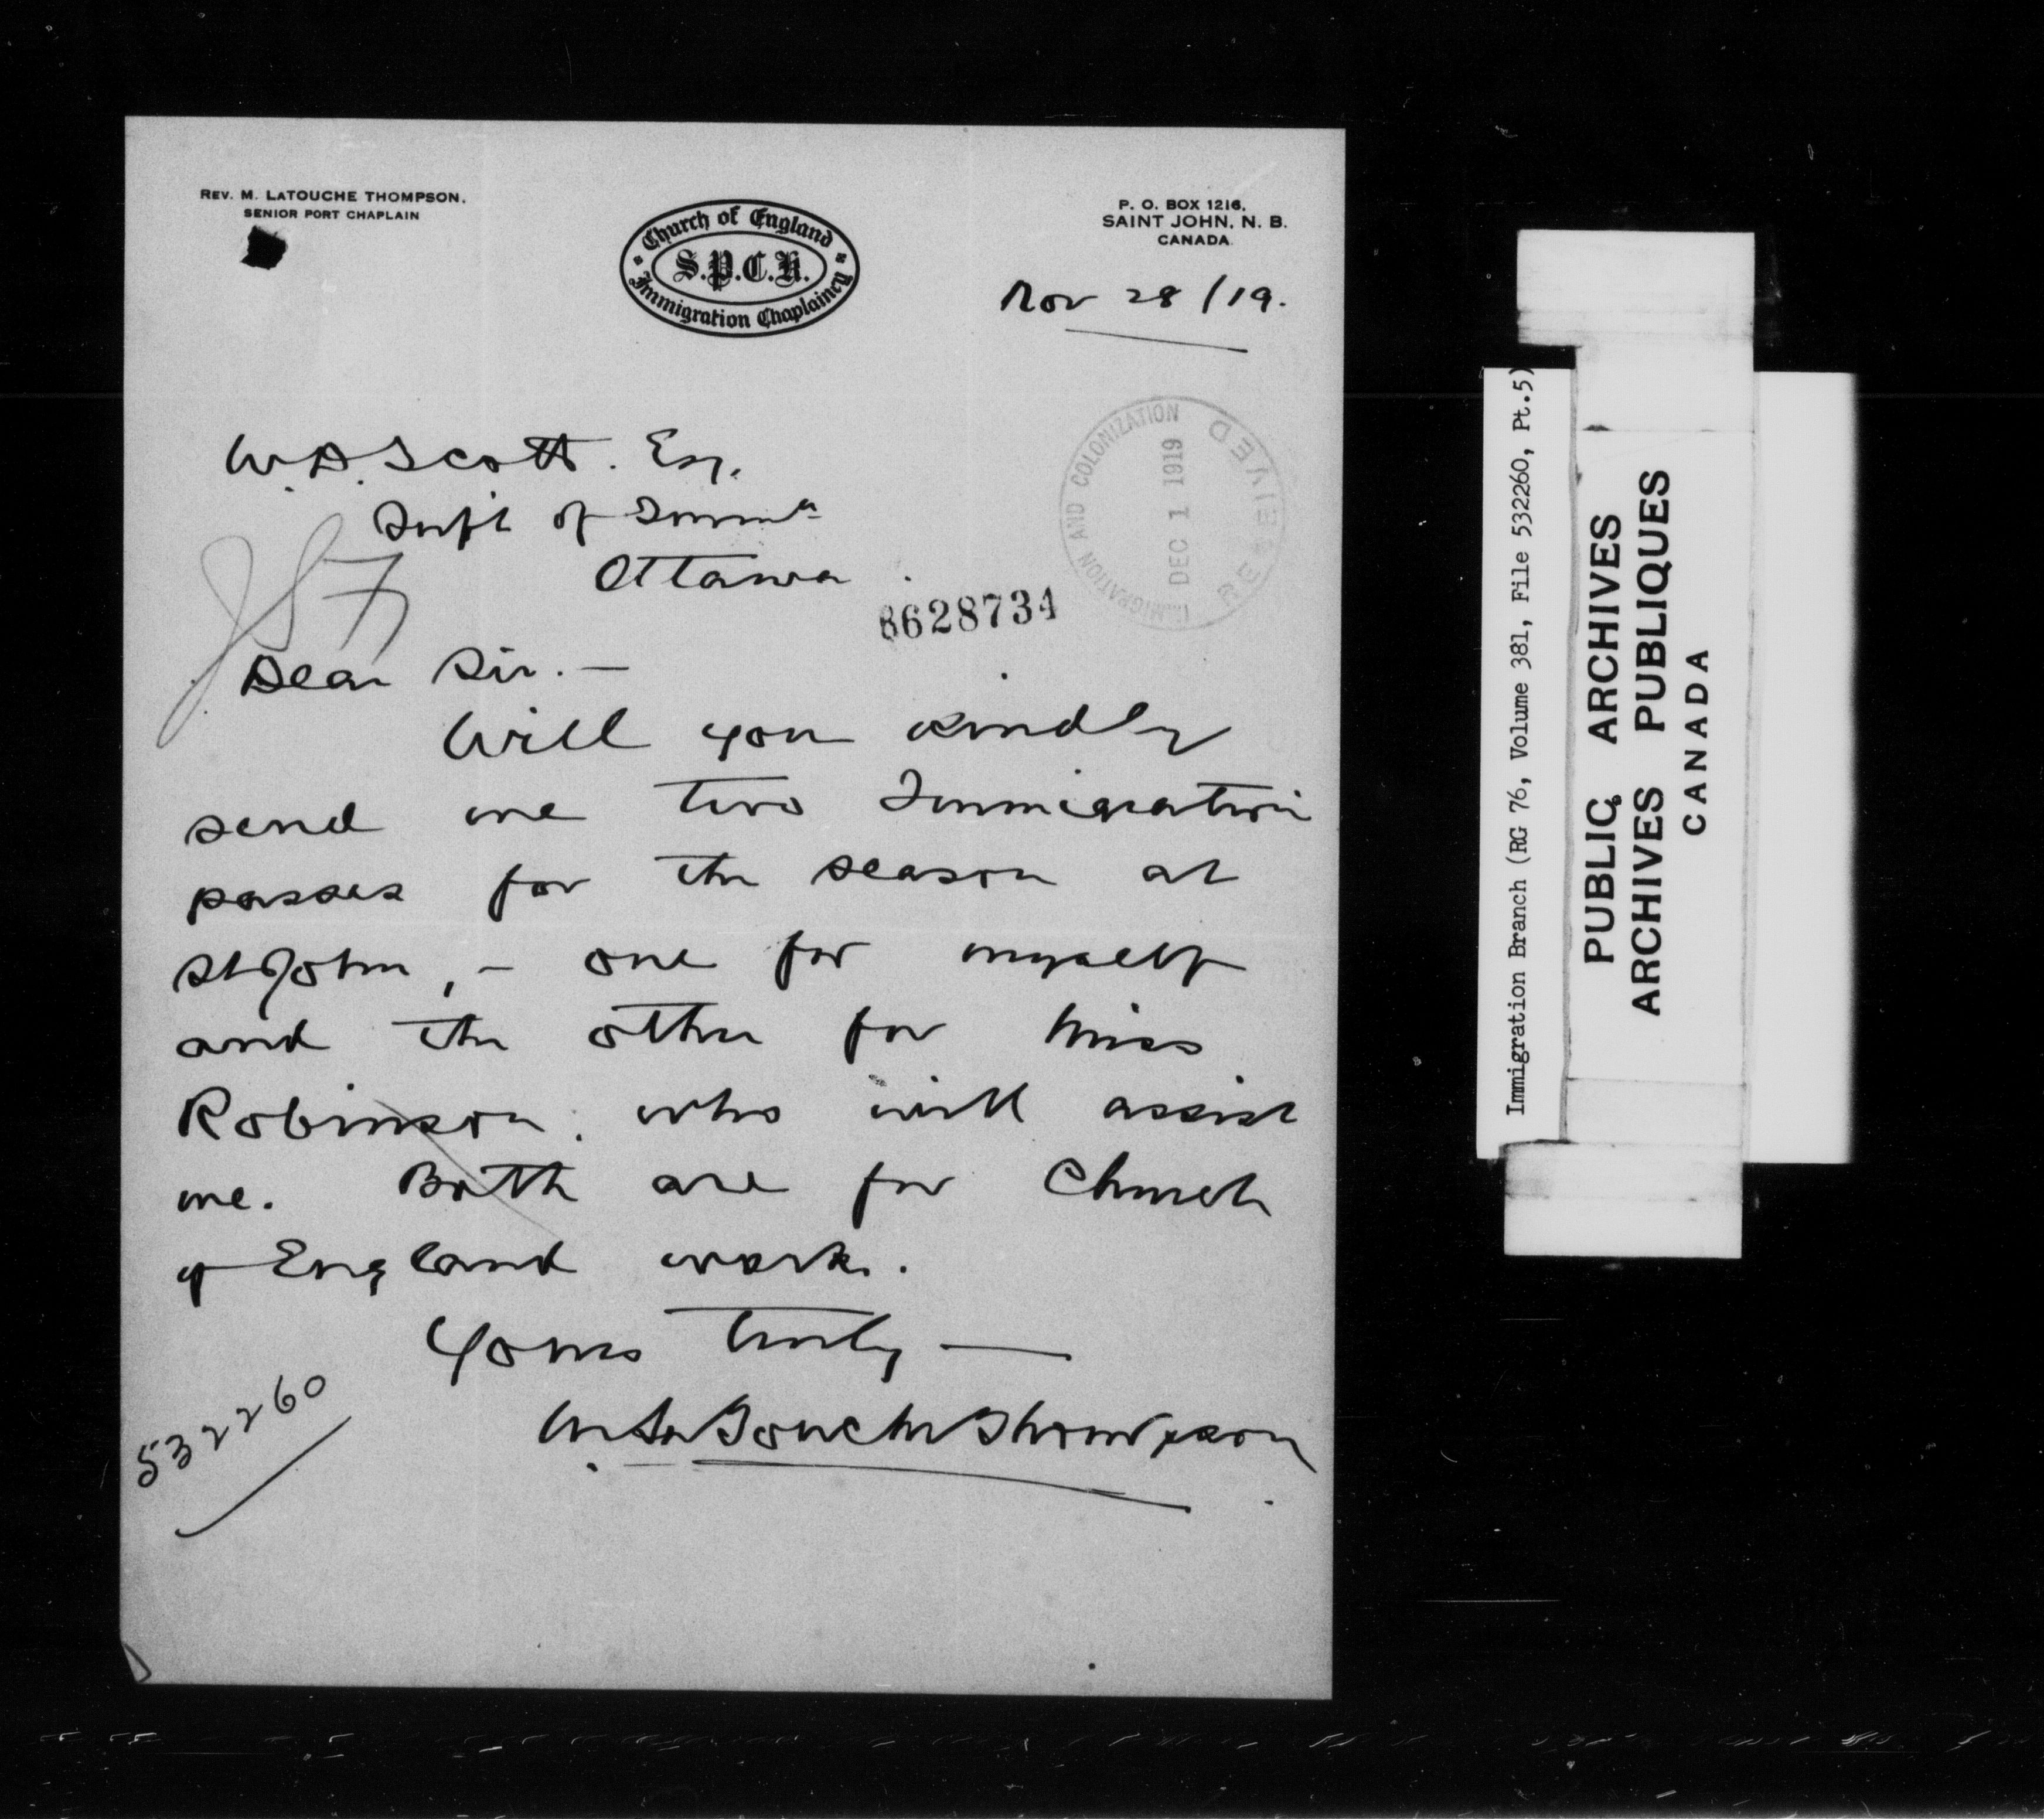 REV. M. LATOUCHE THOMPSON,
SENIOR PORT CHAPLAIN
Church of England
S.P.C.K.
Immigration Chaplaincy
P. O. BOX 1216,
SAINT JOHN, N. B.
CANADA.
Nov 28/19.
W.D. Scott. Esq.
Supt of Immn
Ottawa.
IMMIGRATION AND COLONIZATION
DEC 1 1919
RECEIVED
8628734
Dear Sir. —
Will you kindly
send me two Immigration
passes for the season at
St John, – one for myself
and the other for Miss
Robinson. who will assist
me. Both are for Church
of England work.
Yours truly —
M. LaTouche Thompson
532260
Immigration Branch (RG 76, Volume 381, File 532260, Pt.5)
PUBLIC ARCHIVES
ARCHIVES PUBLIQUES
CANADA